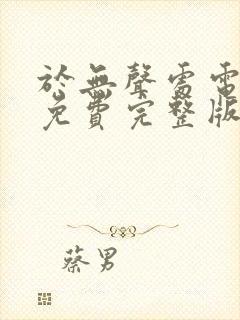 於無聲雷電
免費完整版
蔡男